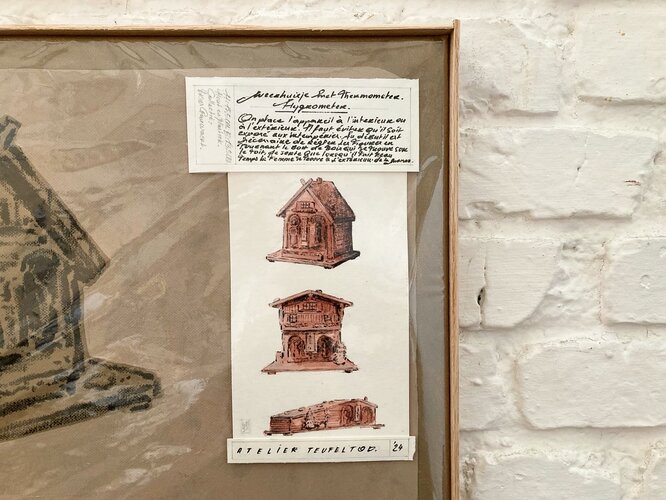 Weerhuisje met Thermometer.
Hygrometer.
On place l'appareil à l'interieur ou
à l'extérieur. Il faut éviter qu'il soit
exposé aux intempéries. Au début il est
nécessaire de régler les figures en
tournant le bout de bois qui se trouve sur
le toit, de sorte que lorsqu'il fait beau
temps la femme se trouve à l'extérieur de la
ATELIER TEUFELTOD. '24